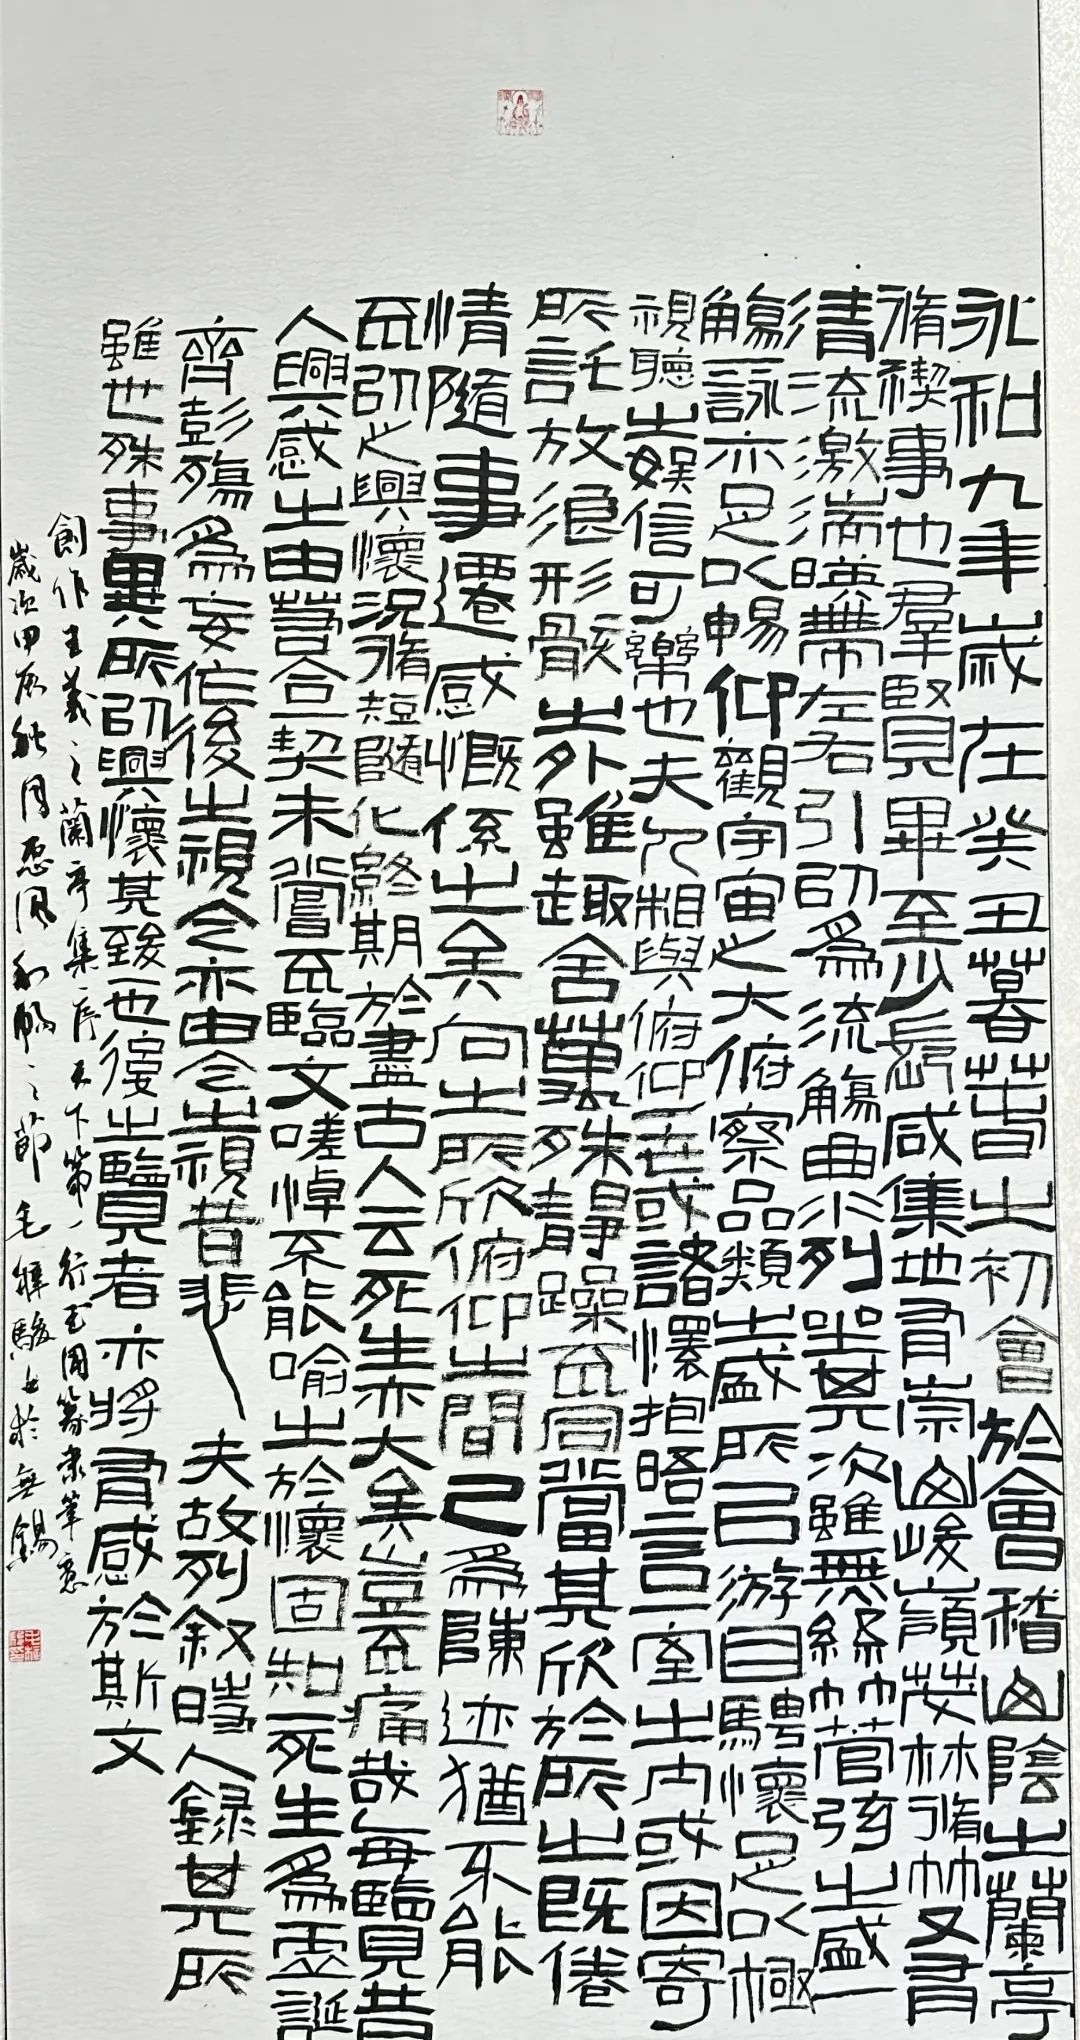 永和九年歲在癸丑暮春之初會於會稽山陰之蘭亭
脩禊事也羣賢畢至少長咸集地有崇山峻嶺茂林脩竹又有
清流激湍暎帶左右引以為流觴曲水列坐其次雖無絲竹管弦之盛一
觴一詠亦足以暢仰觀宇宙之大俯察品類之盛所以游目騁懷足以極
視聽之娛信可樂也夫人相與俯仰一世或諸懷抱晤言一室之內或因寄
所託放浪形骸之外雖趣舍萬殊靜躁不同當其欣於所之既倦
情隨事遷感慨係之矣向之所欣俯仰之間已為陳迹猶不能
不以之興懷況脩短隨化終期於盡古人云死生亦大矣豈不痛哉每覽昔
人興感之由若合一契未嘗不臨文嗟悼不能喻之於懷固知一死生為虛誕
齊彭殤為妄作後之視今亦由今之視昔悲夫故列敘時人錄其所
雖世殊事異所以興懷其致一也後之覽者亦將有感於斯文
創作王羲之蘭亭集序天下第一行書用篆隸筆意
歲次甲辰秋月惠風和暢之節毛駿書於無錫